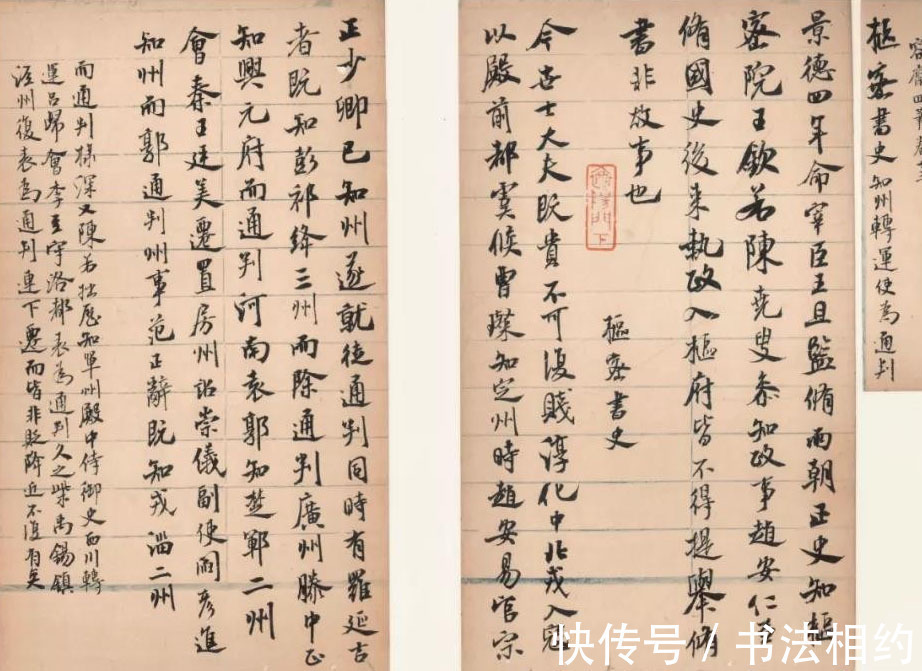 樞密書史知州轉運使為通判
景德四年命宰臣王旦監脩兩朝正史知樞
密院王欽若陳堯叟參知政事趙安仁並
脩國史後來執政入樞府皆不得提舉脩
書非故事也
樞密書史
今世士大夫既貴不可復賤淳化中北戎入寇
以殿前都虞候曹璨知定州時趙安易官宗
正少卿已知州遂就徙通判同時有羅延吉
者既知彭祁絳三州而除通判廣州滕中正
知興元府而通判河南袁郭知楚鄆二州
會秦王廷美遷置房州詔崇儀副使閻彥進
知州而郭通判州事范正辭既知戎淄二州
而通判棣深又陳若拙歷知單州殿中侍御史西川轉
運呂歸會李至守洛都表為通判久之柴禹錫鎮
涇州復表為通判連下遷而皆非貶降近不復有矣
快传号/书法相约